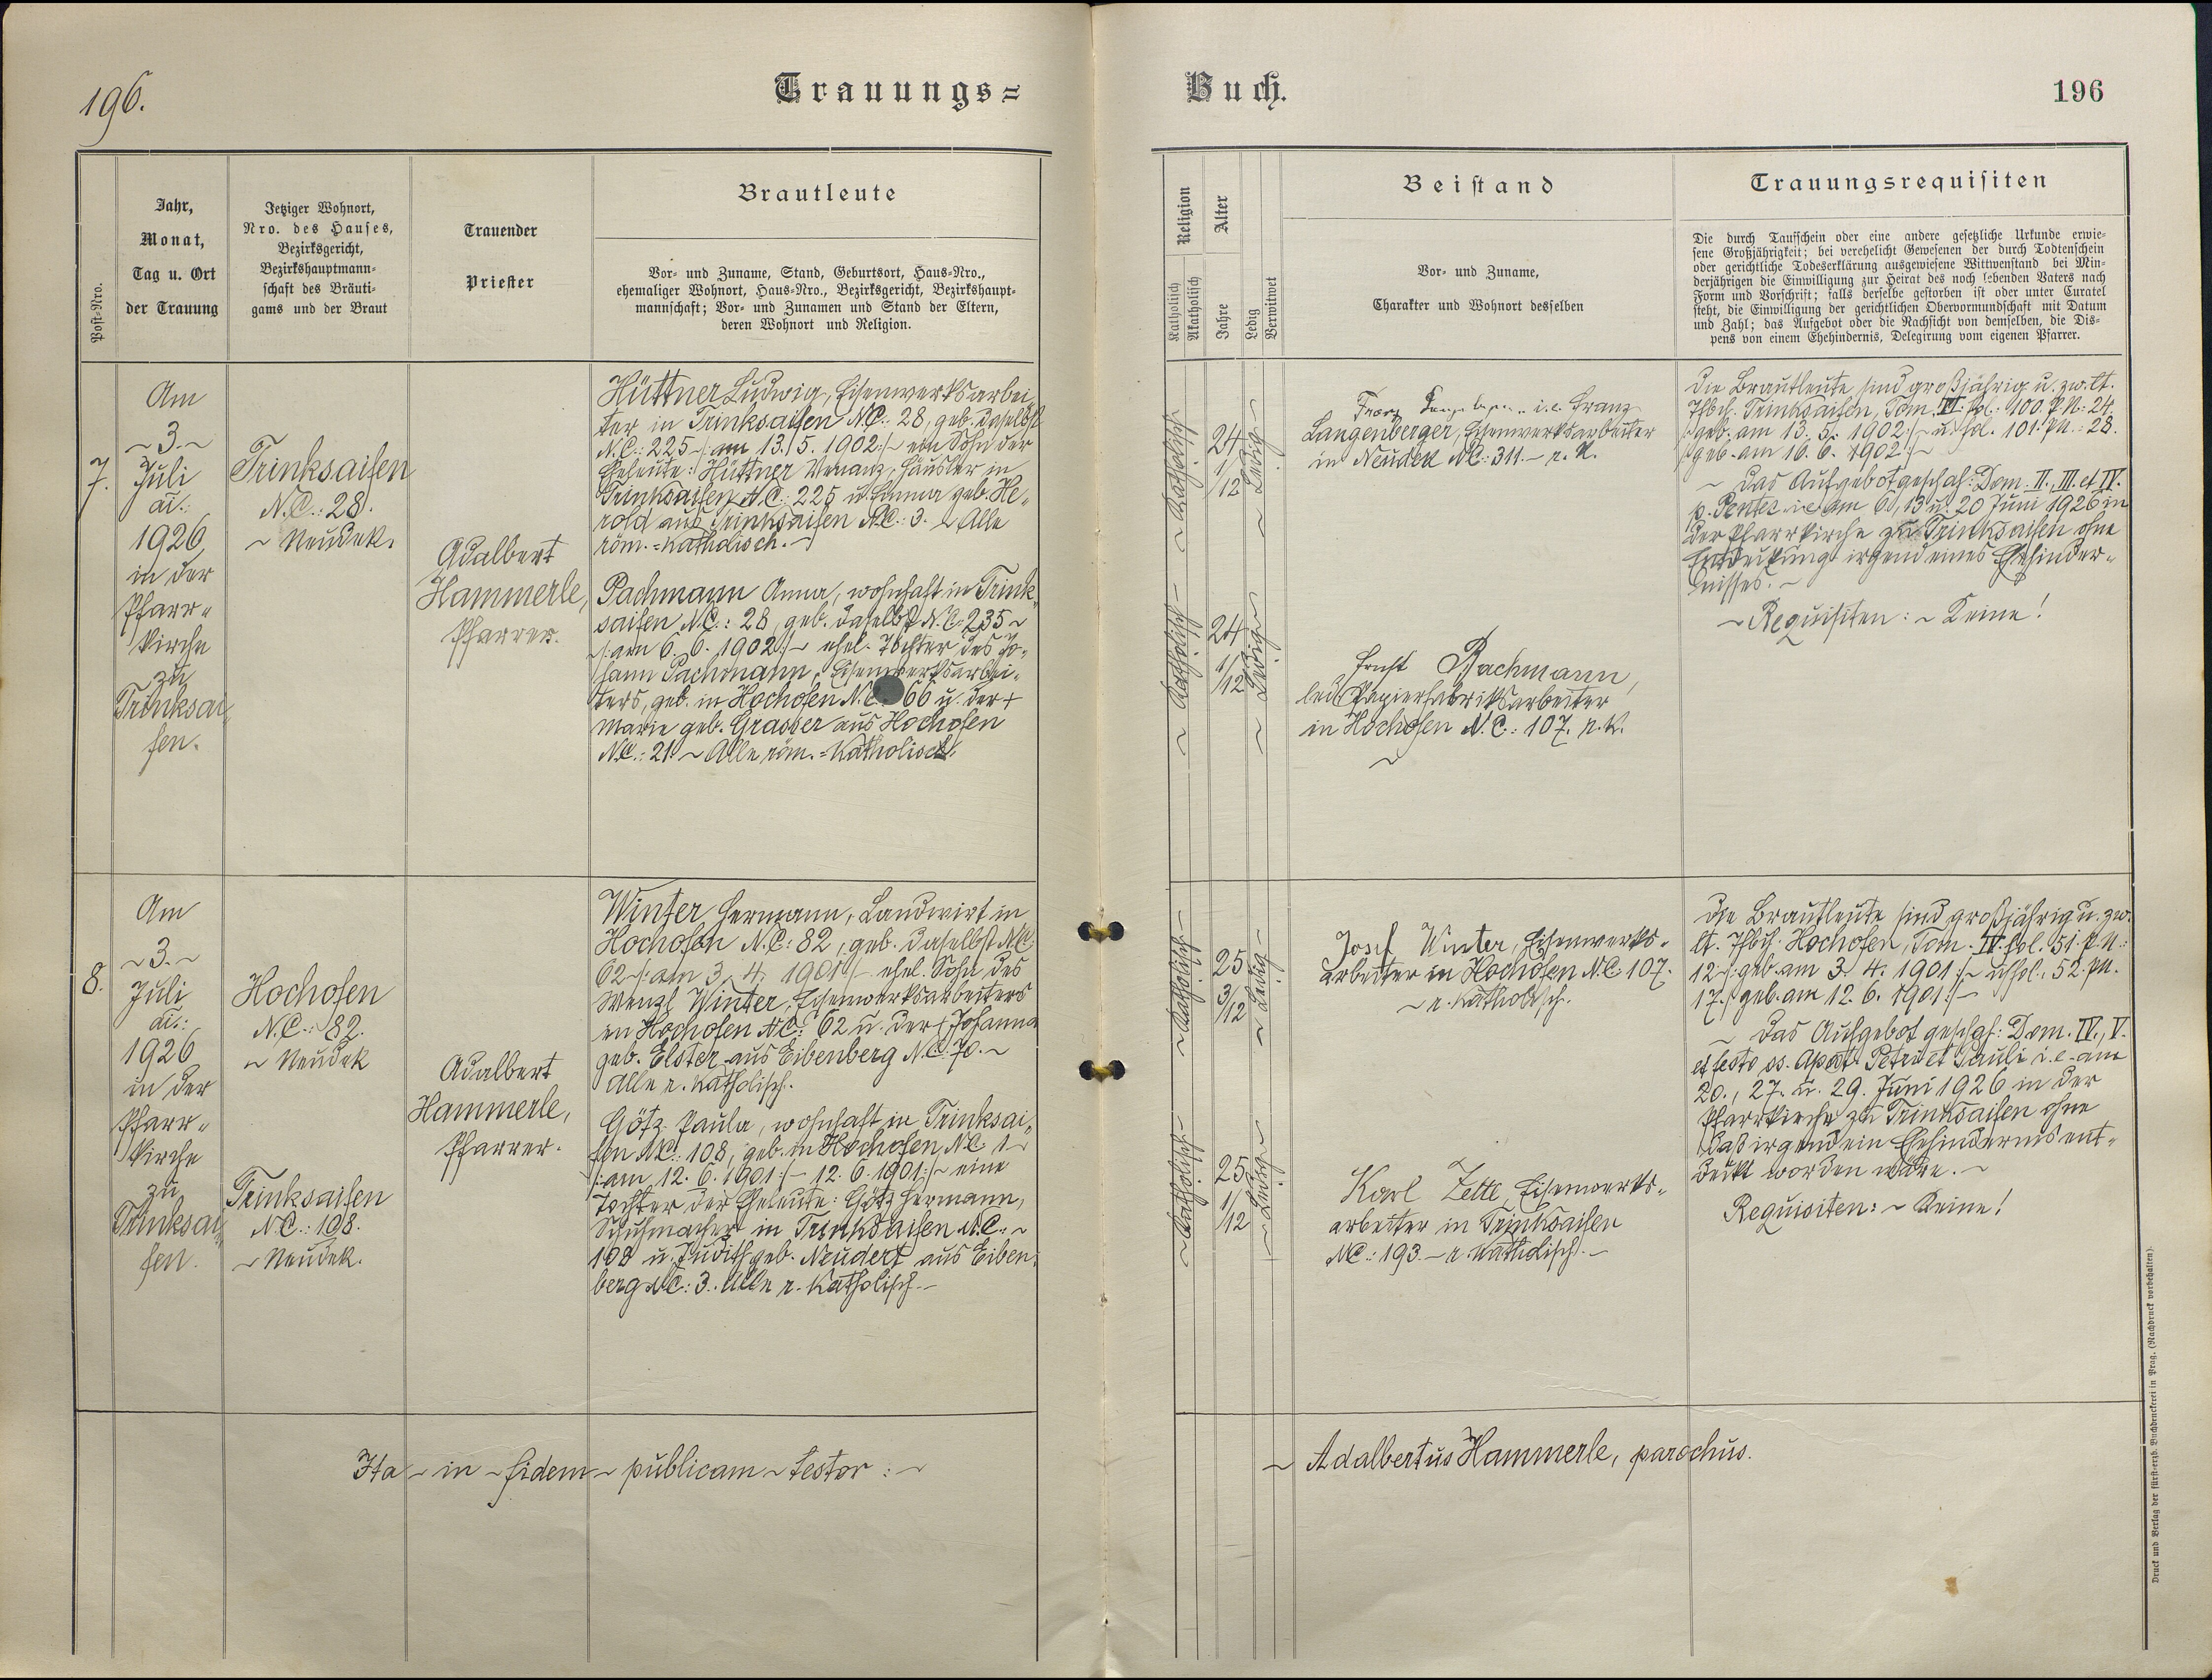 196.
Trauungs=
Buch.
196
Post-Nro.
Jahr,
Monat,
Tag u. Ort
der Trauung
Jetziger Wohnort,
Nro. des Hauses,
Bezirksgericht,
Bezirkshauptmann-
schaft des Bräuti-
gams und der Braut
Trauender
Priester
Brautleute
Vor- und Zuname, Stand, Geburtsort, Haus-Nro.,
ehemaliger Wohnort, Haus-Nro., Bezirksgericht, Bezirkshaupt-
mannschaft; Vor- und Zunamen und Stand der Eltern,
deren Wohnort und Religion.
Religion
Katholisch
Akatholisch
Alter
Jahre
Ledig
Verwitwet
Beistand
Vor- und Zuname,
Charakter und Wohnort desselben
Trauungsrequisiten
Die durch Taufschein oder eine andere gesetzliche Urkunde erwie-
sene Großjährigkeit; bei verehelicht Gewesenen der durch Todtenschein
oder gerichtliche Todeserklärung ausgewiesene Wittwenstand bei Min-
derjährigen die Einwilligung zur Heirat des noch lebenden Vaters nach
Form und Vorschrift; falls derselbe gestorben ist oder unter Curatel
steht, die Einwilligung der gerichtlichen Obervormundschaft mit Datum
und Zahl; das Aufgebot oder die Nachsicht von demselben, die Dis-
pens von einem Ehehindernis, Delegirung vom eigenen Pfarrer.
7.
Am
~3.~
Juli
ai.:
1926
in der
Pfarr-
kirche
zu
Trinksai-
fen.
Trinksaifen
N.C.: 28.
~ Neudek.
Adalbert
Hammerle,
Pfarrer.
Hüttner Ludwig, Eisenwerksarbei-
ter in Trinksaifen N.C.: 28, geb. daselbst
N.C.: 225 /: am 13./5. 1902 :/ ~ ein Sohn der
Eheleute: Hüttner Venanz, Häusler in
Trinksaifen N.C.: 225 u. Emma geb. He-
rold aus Trinksaifen N.C.: 3. ~ Alle
röm.=katholisch. ~
Pachmann Anna, wohnhaft in Trink-
saifen N.C.: 28, geb. daselbst N.C. 235 ~
/: am 6. 6. 1902 :/ ~ ehel. Tochter des Jo-
hann Pachmann, Eisenwerksarbei-
ters, geb. in Hochofen N.C. 66 u. der +
Marie geb. Grasser aus Hochofen
N.C.: 21. ~ Alle röm.=katholisch.
~ Katholisch ~
24
1/12
~ Ledig ~
Franz i.e. Franz
Langenberger, Eisenwerksarbeiter
in Neudek N.C.: 311. ~ r. k.
~ Katholisch ~
24
1/12
~ Ledig ~
Ernst Pachmann,
led. Papierfabriksarbeiter
in Hochofen N.C.: 107. r. k.
Die Brautleute sind großjährig u. zw. lt.
Thbch. Trinksaifen, Tom. fol.: 100. P.N.: 24.
/: geb. am 13. 5. 1902 :/ ~ u. fol. 101. P.N.: 28.
/: geb. am 16. 6. 1902 :/ ~
~ Das Aufgebot geschah: Dom. II., III. et IV.
p. Pentec. i.e. am 6., 13. u. 20 Juni 1926 in
der Pfarrkirche zu Trinksaifen ohne
Entdeckung irgend eines Ehehinder-
nisses. ~
~ Requisiten: ~ Keine!
8.
Am
~3.~
Juli
ai.:
1926
in der
Pfarr-
kirche
zu
Trinksai-
fen.
Hochofen
N.C.: 82.
~ Neudek
Trinksaifen
N.C.: 108.
~ Neudek.
Adalbert
Hammerle,
Pfarrer.
Winter Hermann, Landwirt in
Hochofen N.C.: 82, geb. daselbst N.C.
62 /: am 3. 4. 1901 :/ ~ ehel. Sohn des
Wenzl Winter, Eisenwerksarbeiters
in Hochofen N.C.: 62 u. der + Johanna
geb. Elster aus Eibenberg N.C. 70. ~
Alle r. katholisch.
Götz Paula, wohnhaft in Trinksai-
fen N.C.: 108, geb. in Hochofen, N.C. 1 ~
/: am 12. 6. 1901 :/ ~ 12. 6. 1901 :/ ~ eine
Tochter der Eheleute: Götz Hermann,
Schuhmacher in Trinksaifen N.C.: ~
108 u. Judith geb. Neudert aus Eiben-
berg N.C.: 3. Alle r. katholisch. ~
~ Katholisch ~
25
3/12
~ Ledig ~
Josef Winter, Eisenwerks-
arbeiter in Hochofen N.C. 107.
~ r. katholisch.
~ Katholisch ~
25
1/12
~ Ledig ~
Karl Zette, Eisenwerks-
arbeiter in Trinksaifen
N.C.: 193. ~ r. katholisch. ~
Die Brautleute sind großjährig u. zw.
lt. Thbch. Hochofen, Tom. IV. fol. 51. P.N.:
12 /: geb. am 3. 4. 1901 :/ ~ u. fol. 52. P.N.
17. /: geb. am 12. 6. 1901 :/ ~
~ Das Aufgebot geschah: Dom. IV., V.
et festo ss. Apost. Petri et Pauli i.e. am
20., 27. u. 29. Juni 1926 in der
Pfarrkirche zu Trinksaifen ohne
daß irgend ein Ehehindernis ent-
deckt worden wäre. ~
Requisiten: ~ Keine!
Ita ~ in ~ fidem ~ publicam ~ testor: ~
~ Adalbertus Hammerle, parochus.
Druck und Verlag der fürst-erzb. Buchdruckerei in Prag. (Nachdruck vorbehalten).